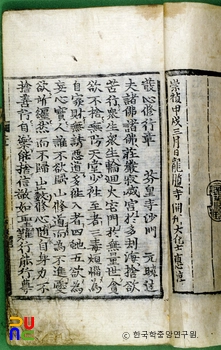 崇禎甲戌三月日龍腹寺開刊大化士
發心修行章 芬皇寺沙門 元曉述
夫諸佛諸佛莊嚴寂滅宮於多劫海捨欲
苦行衆生衆生輪回火宅門於無量世貪
欲不捨無防天堂少往至者三毒煩惱爲
自家財無誘惡道多往入者四虵五欲爲
妄心寶人誰不欲歸山修道而爲不進愛
欲所纏然而不歸山藪修心隨自身力不
捨善行自樂能捨信敬如聖難行能行尊
ⓒ 한국학중앙연구원.